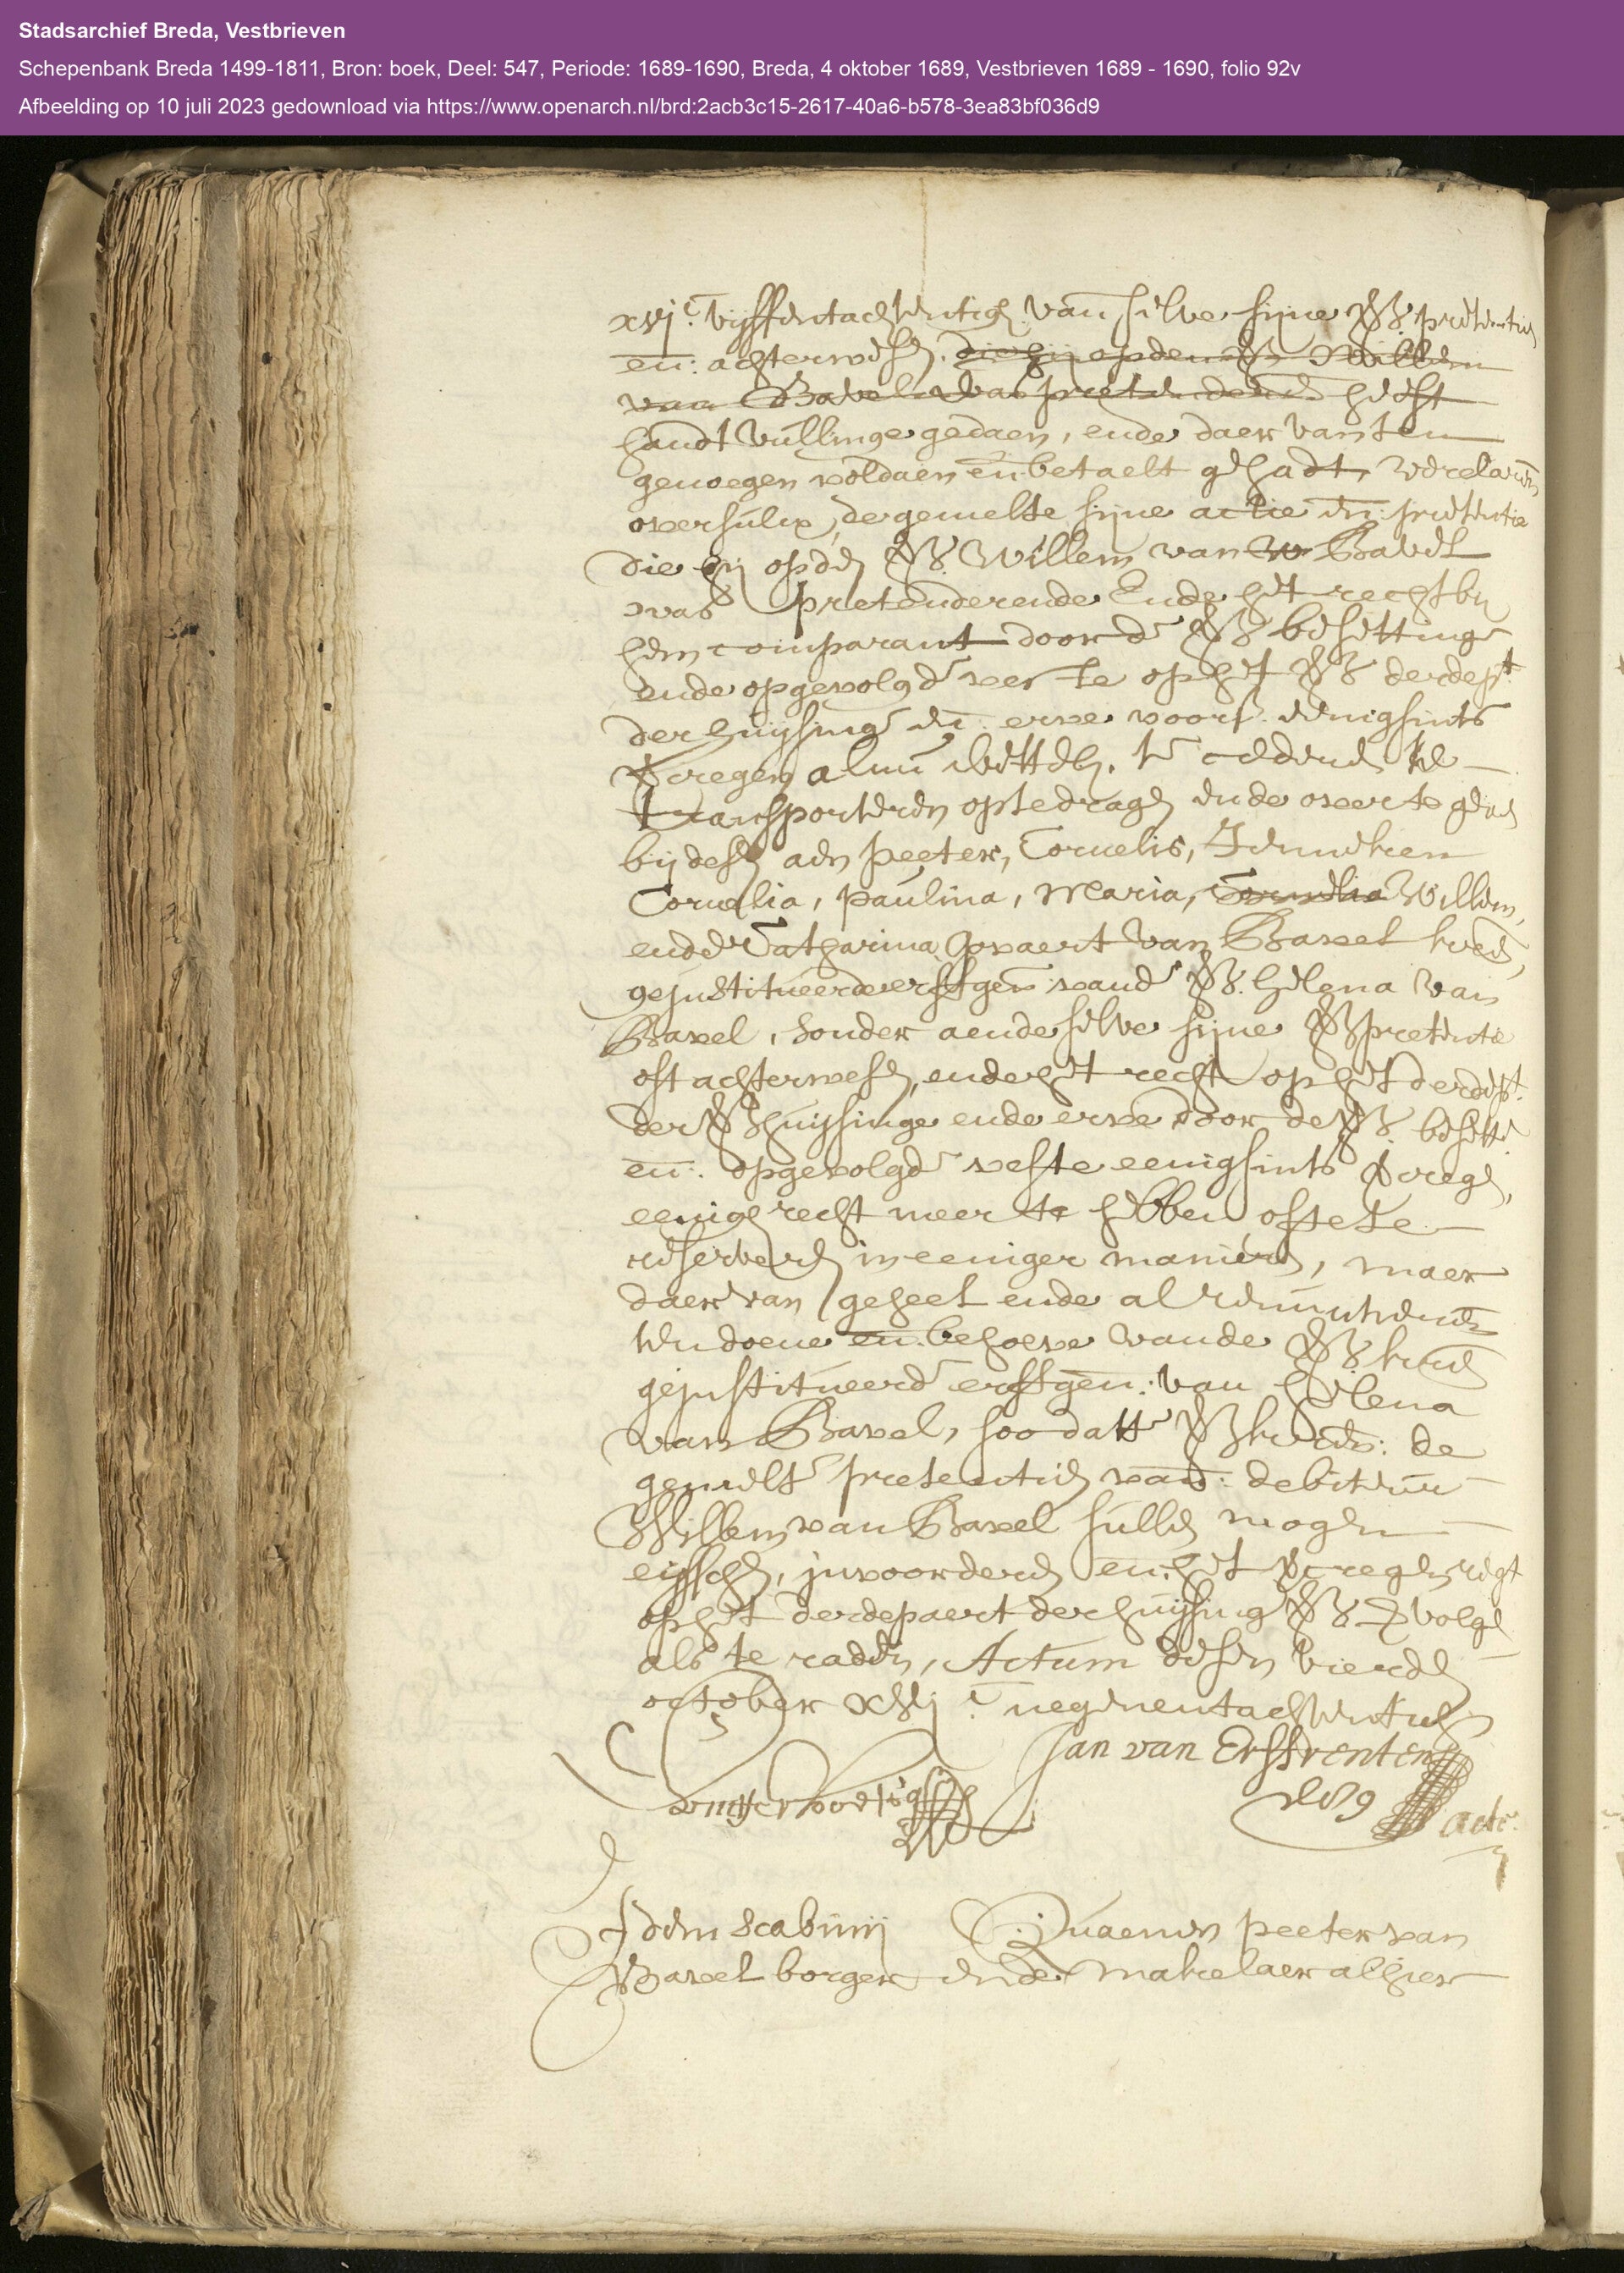 Stadsarchief Breda, Vestbrieven
Schepenbank Breda 1499-1811, Bron: boek, Deel: 547, Periode: 1689-1690, Breda, 4 oktober 1689, Vestbrieven 1689 - 1690, folio 92v
Afbeelding op 10 juli 2023 gedownload via https://www.openarch.nl/brd:2acb3c15-2617-40a6-b578-3ea83bf036d9
xvjc vijffentachtentich van selve sijne
en: achterwesen. die hij op den Willem
van Bavel was pretenderende heeft
handtvullinge gedaen, ende daer van ten
genoegen voldaen en betaelt gehadt,
oversulcx, de gemelte sijne actie en: pretentie
die hij opden Willem van Bavel
was pretenderende Ende het recht by
hem comparant door de besettinge
ende opgevolgde veste op het derdept
der huijsinge en: erve voors. eenigsints
te
transporteren op te dragen ende over te geven
bij desen aen Peeter, Cornelis, Jenneken
Cornelia, Paulina, Maria, Cornelia Willem,
ende Catharina Govaert van Bavel
gejnstitueerde erffgen: vande Helena van
Bavel, sonder aende selve sijne pretentie
oft achterwesen, ende het recht op het derdept
der huijsinge ende erve door de
en: opgevolgde veste eenigsints
eenige recht meer te hebben ofte te
reserveren in eeniger manieren, maer
daer van geheel ende al renuntierende
ten doene en: behoeve vande
gejnstitueerde erffgen: van Helena
van Bavel, soo datte de
gemelte pretentien vand: debiteur
Willem van Bavel sullen mogen
eysschen, jnvoorderen en: het
op het derdepaert der huijsinge
als te raden, Actum desen vierden
october xvjc negenentachtentich
Jan van
1689
Idem scabinij Quaemen Peeter van
Bavel borger ende makelaer alhier